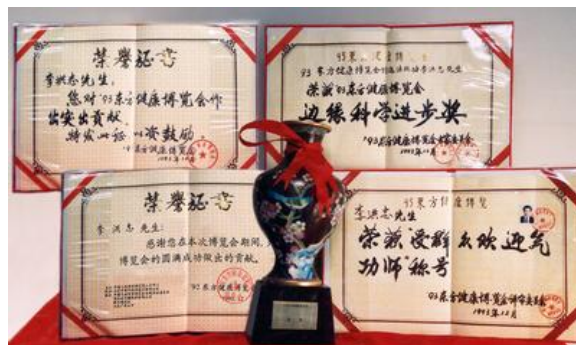 荣誉证书
李洪志先生:
您对'93东方健康博览会作
出突出贡献.
特发此证 以资鼓励.
'93东方健康博览会
1993年12月
93东方健康博览会
荣获'93东方健康博览会
边缘科学进步奖
'93东方健康博览会评审委员会
1993年12月
荣誉证书
李洪志 先生:
感谢您在本次博览会期间,
博览会的圆满成功做出的贡献.
'93东方健康博览会
李洪志先生
荣获"受群众欢迎气
功师"称号
'93东方健康博览会评审委员会
1993年12月